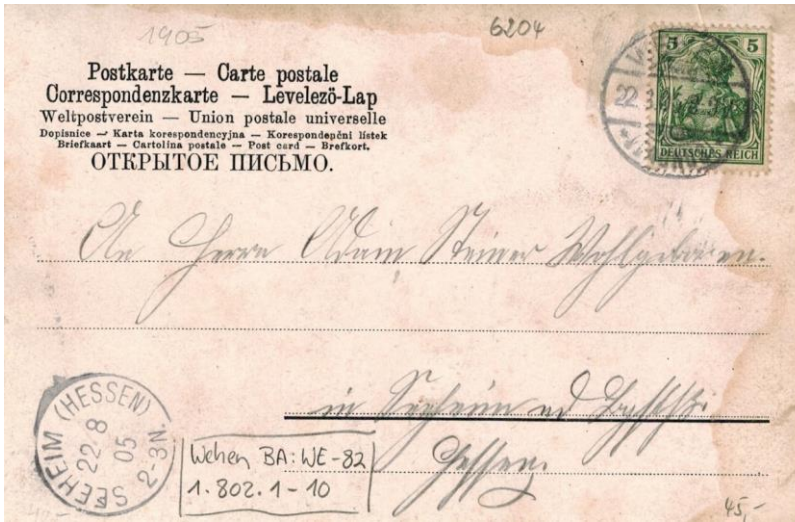 1905
6204
Postkarte — Carte postale
Correspondenzkarte — Levelező-Lap
Weltpostverein — Union postale universelle
Dopisnice — Karta korespondencyjna — Korespondenpční lístek
Briefkaart — Cartolina postale — Post card — Brefkort.
ОТКРЫТОЕ ПИСЬМО.
5 5
DEUTSCHES REICH
22.
An Herrn Adam Steiner Wohlgeboren.
in Seeheim
Hessen.
SEEHEIM (HESSEN)
22/8
05
2-3N.
Wehen BA: WE-82
1.802.1-10
45,-